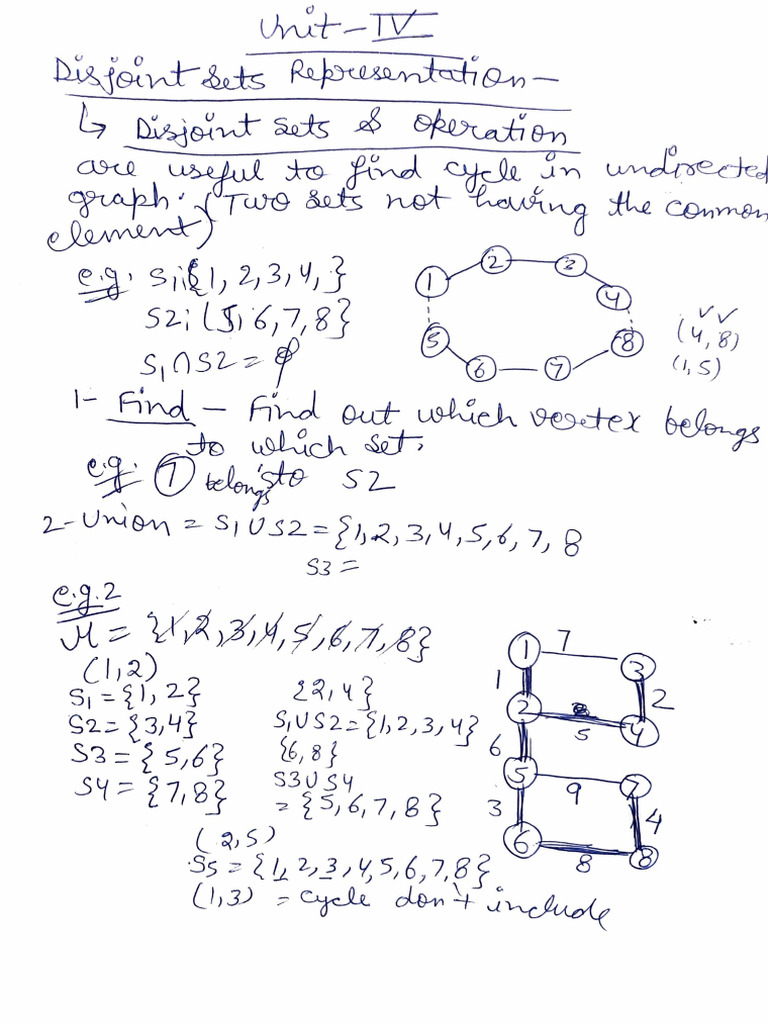 Unit-IV
Disjoint sets Representation-
↳ Disjoint sets & operation
are useful to find cycle in undirected
graph. (Two sets not having the common
element)
e.g: S1;{1, 2, 3, 4, }
S2; (5, 6, 7, 8}
S1∩S2 = φ
1 2 3 4 5 6 7 8
(4, 8)
(1, 5)
1- Find - Find out which vertex belongs
to which set.
e.g: 7 belongs to S2
2- Union = S1∪S2 = {1, 2, 3, 4, 5, 6, 7, 8
S3 =
e.g.2
M = {1, 2, 3, 4, 5, 6, 7, 8}
(1, 2)
S1 = {1, 2}
S2 = {3,4}
S3 = {5,6}
S4 = {7,8}
{2, 4}
S1∪S2 = {1, 2, 3, 4}
{6, 8}
S3∪S4
= {5, 6, 7, 8}
(2, 5)
S5 = {1, 2, 3, 4, 5, 6, 7, 8}
(1, 3) = cycle don't include
1 7 3
1 2
2 5 4
6
5 9 7
3 4
6 8 8